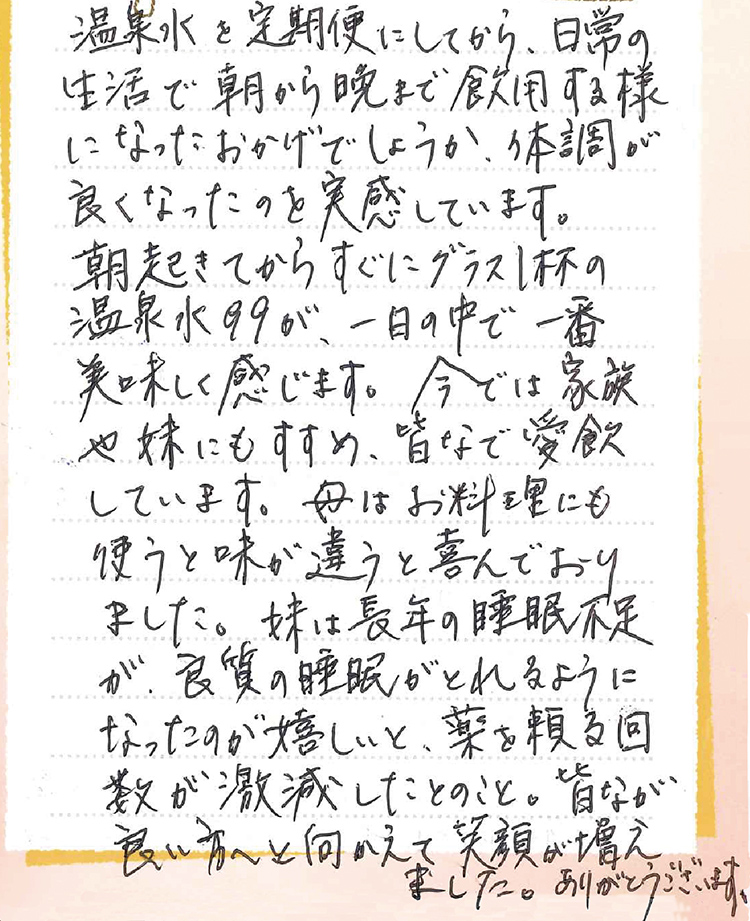 温泉水を定期便にしてから、日常の
生活で朝から晩まで飲用する様
になったおかげでしょうか、体調が
良くなったのを実感しています。
朝起きてからすぐにグラス1杯の
温泉水99が、一日の中で一番
美味しく感じます。今では家族
や妹にもすすめ、皆なで愛飲
しています。母はお料理にも
使うと味が違うと喜んでおり
ました。妹は長年の睡眠不足
が、良質の睡眠がとれるように
なったのが嬉しいと、薬を頼る回
数が激減したとのこと。皆なが
良い方へと向かえて笑顔が増え
ました。ありがとうございます。